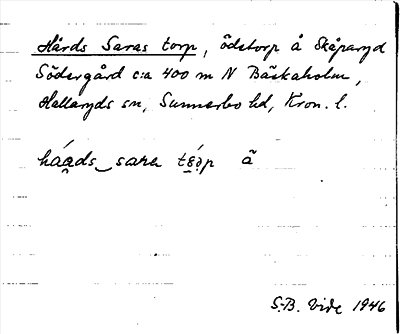 Hårds Saras torp, ödetorp å Skåparyd
Södergård c:a 400 m N Bäckaholm,
Hallaryds sn, Sunnerbo hd, Kron. l.
håads sara tɛ̀əp å
S.-B. Vide 1946